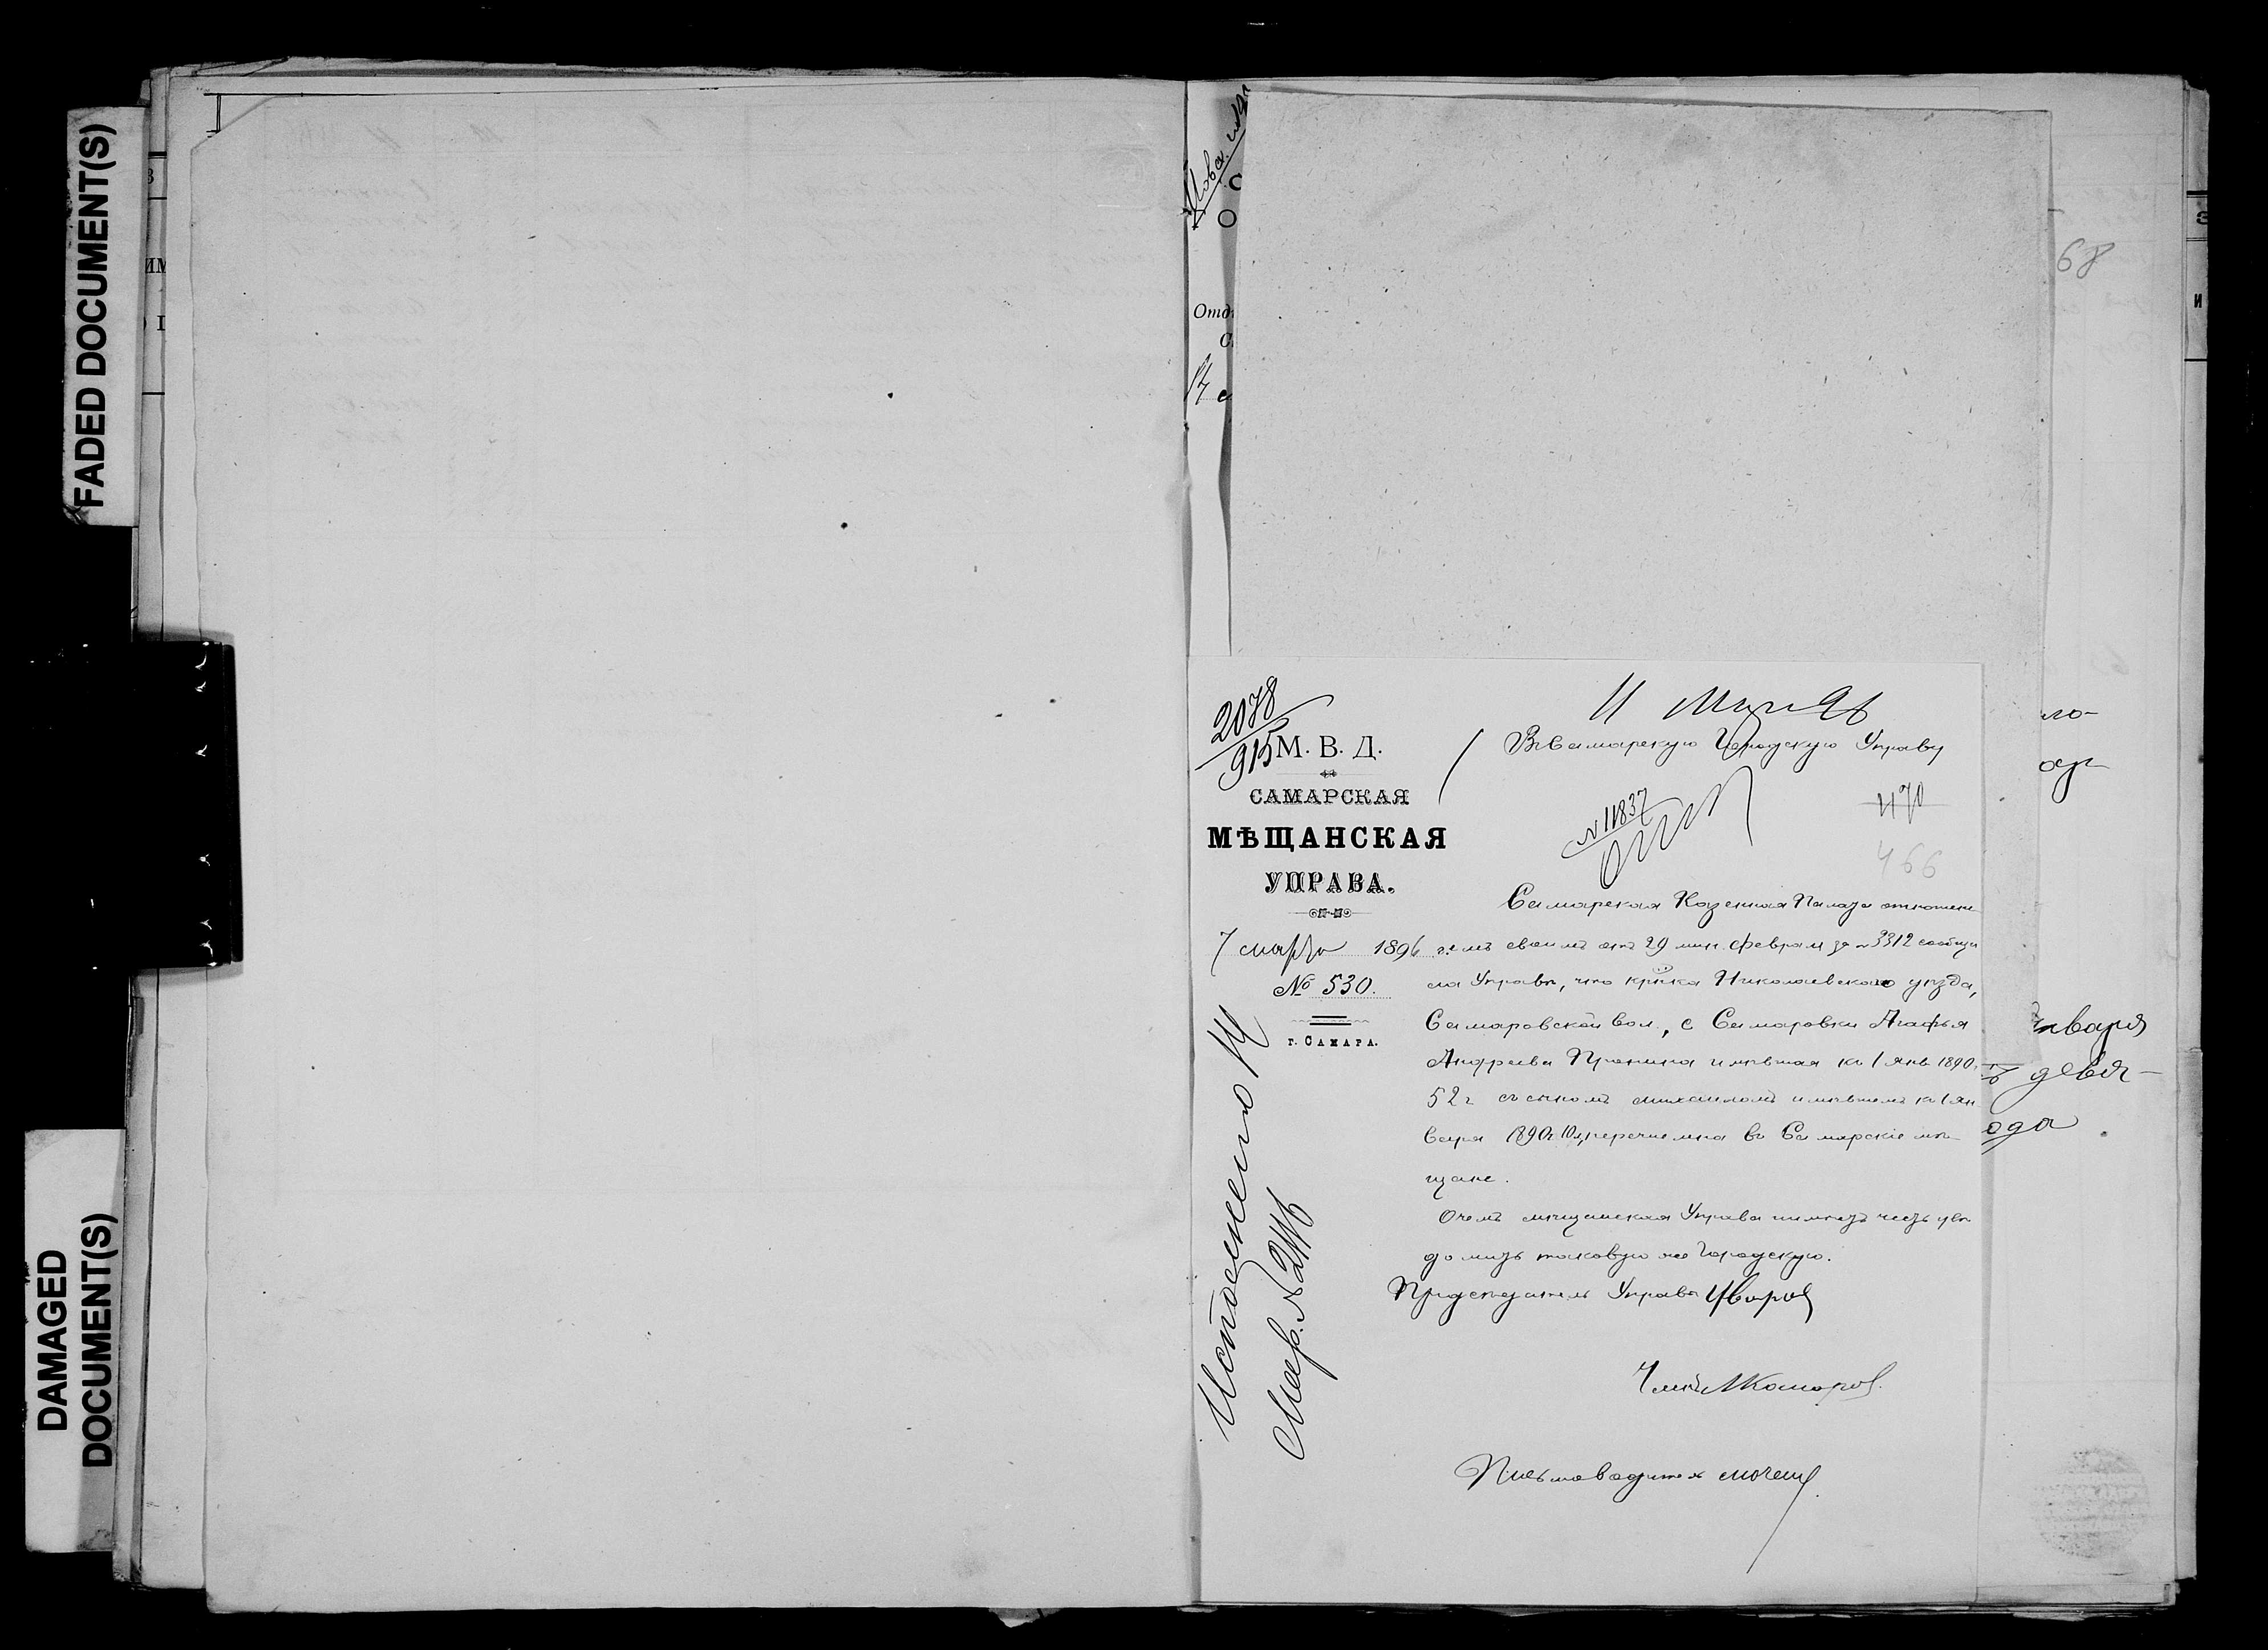 FADED DOCUMENT(S)
DAMAGED
DOCUMENT(S)
68
2078
915
М. В. Д.
САМАРСКАЯ
МѢЩАНСКАЯ
УПРАВА.
7 марта 1896 г.
№ 530.
г. САМАРА.
Въ Самарскую Городскую Управу
N 11837
470
466
Самарская Казенная Палата отношені-
емъ своимъ отъ 29 мин. февраля за N 3312 сообщи
ла Управѣ, что кр-ка Николаевскаго уѣзда,
Самаровской вол., с. Самаровки Агафья
Андреева Пронина имѣвшая къ 1 янв. 1890 г.
52 г. съ сыномъ Михаиломъ имѣвшемъ къ 1 ян
варя 1890 г. 10 л, перечислена въ Самарскіе мѣ-
щане.
О чемъ мѣщанская Управа имѣетъ честь увѣ
домить таковую же Городскую.
Предсѣдатель Управы Уваровъ
Членъ Комаровъ
Письмоводитель
Исполнено
Мар. N
нваря
ъ девя-
ода